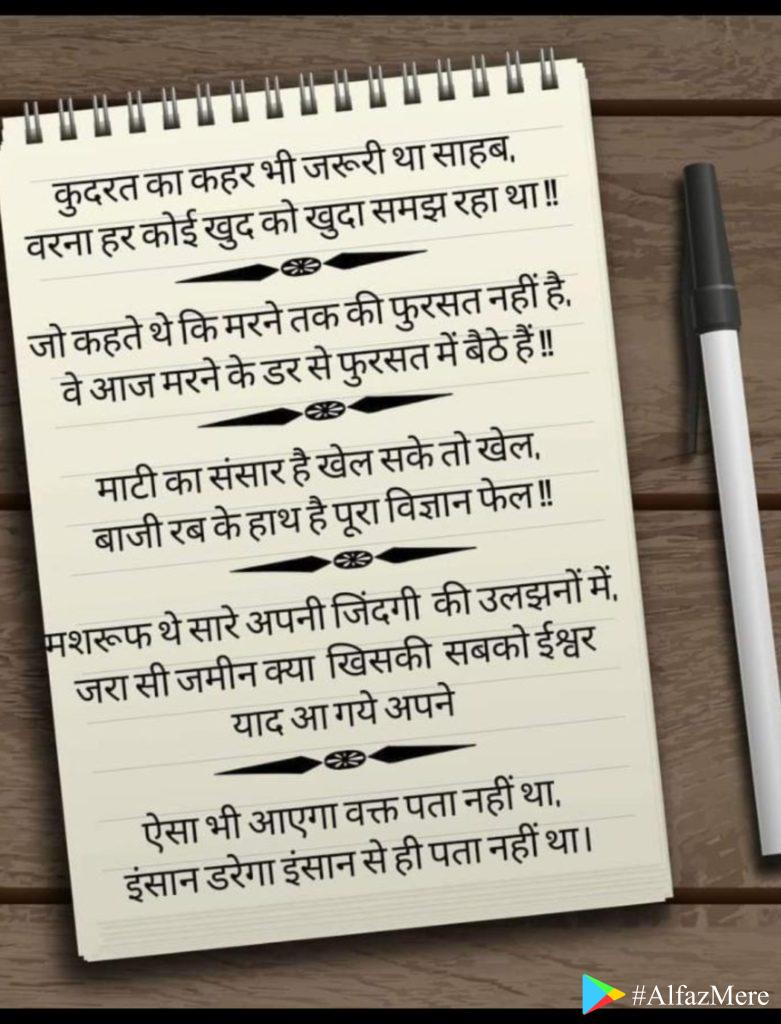 कुदरत का कहर भी जरूरी था साहब,
वरना हर कोई खुद को खुदा समझ रहा था!!
जो कहते थे कि मरने तक की फुरसत नहीं है,
वे आज मरने के डर से फुरसत में बैठे हैं!!
माटी का संसार है खेल सके तो खेल,
बाजी रब के हाथ है पूरा विज्ञान फेल!!
मशरूफ थे सारे अपनी जिंदगी की उलझनों में,
जरा सी जमीन क्या खिसकी सबको ईश्वर
याद आ गये अपने
ऐसा भी आएगा वक्त पता नहीं था,
इंसान डरेगा इंसान से ही पता नहीं था।
#AlfazMere